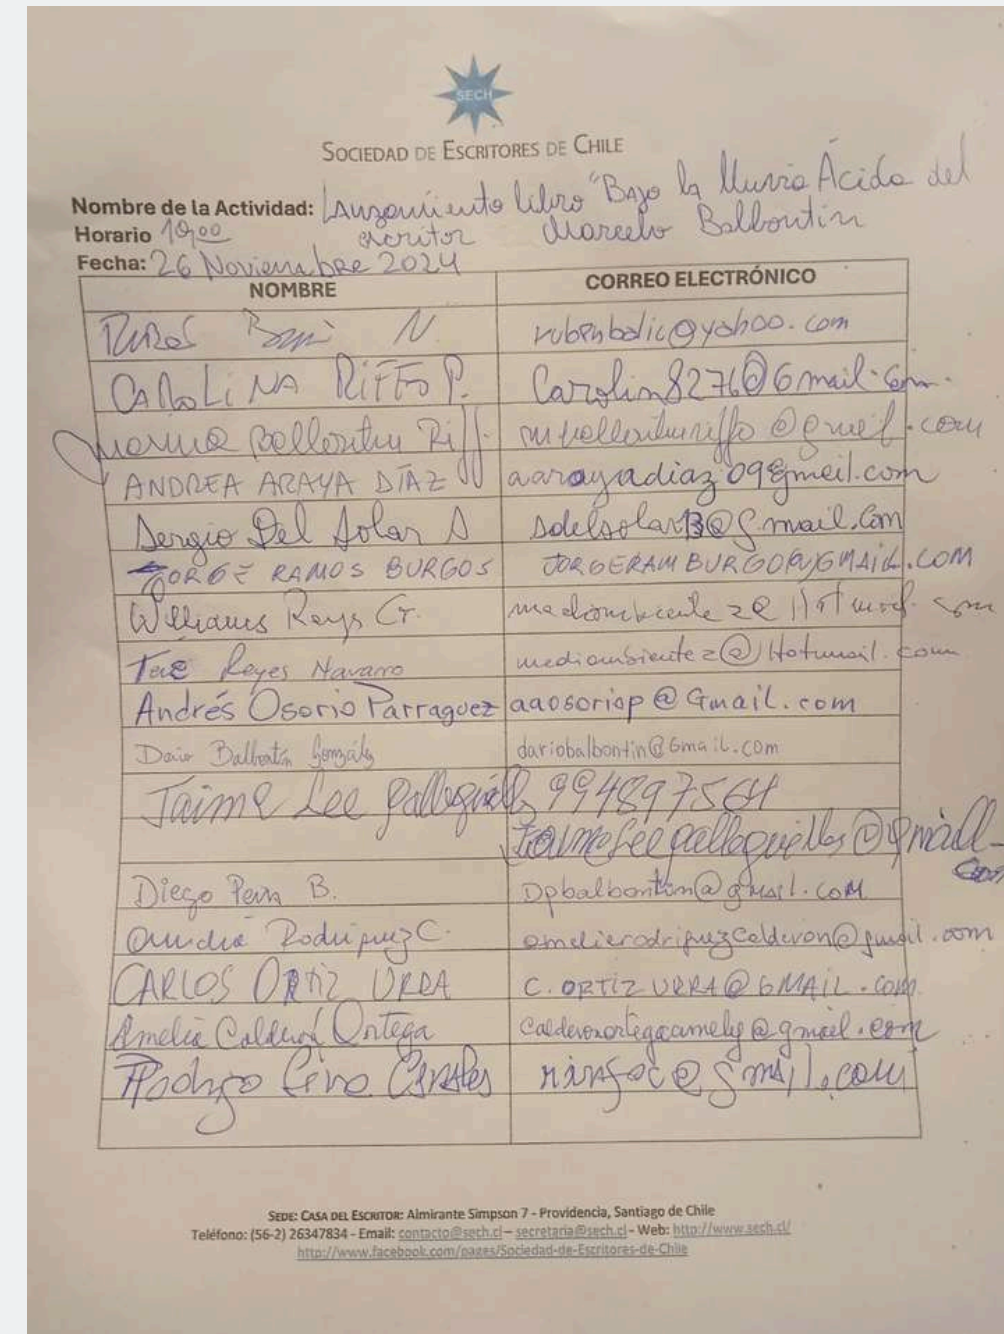 SECH
SOCIEDAD DE ESCRITORES DE CHILE
Nombre de la Actividad: Lanzamiento libro "Bajo la lluvia Ácida del
escritor Marcelo Balbontin
Horario 19,00
Fecha: 26 Noviembre 2024
NOMBRE CORREO ELECTRÓNICO
N. rubenbalic@yahoo.com
CAROLINA RIFFO P. Carolin8276@Gmail.com.
ANDREA ARAYA DÍAZ aarayadiaz09@gmail.com
Sergio Del Solar A sdelsolar13@gmail.com
JORGE RAMOS BURGOS JORGERAMBURGO@GMAIL.COM
Williams Reyes G.
Reyes Navarro mediambientez@Hotmail.com
Andrés Osorio Parraguez aaosoriop@Gmail.com
Dario Balbontín González dariobalbontin@Gmail.com
Jaime Lee Galleguillos 994897564
jaimeleegalleguillos@gmail.
com
Diego B. Dpbalbontin@gmail.com
Rodriguez C. amelierodriguezcalderon@gmail.com
CARLOS ORTIZ URRA C.ORTIZURRA@GMAIL.COM
Amelia Calderón Ortega calderonortegaamely@gmail.com
Rodrigo
SEDE: CASA DEL ESCRITOR: Almirante Simpson 7 - Providencia, Santiago de Chile
Teléfono: (56-2) 26347834 - Email: contacto@sech.cl – secretaria@sech.cl - Web: http://www.sech.cl/
http://www.facebook.com/pages/Sociedad-de-Escritores-de-Chile